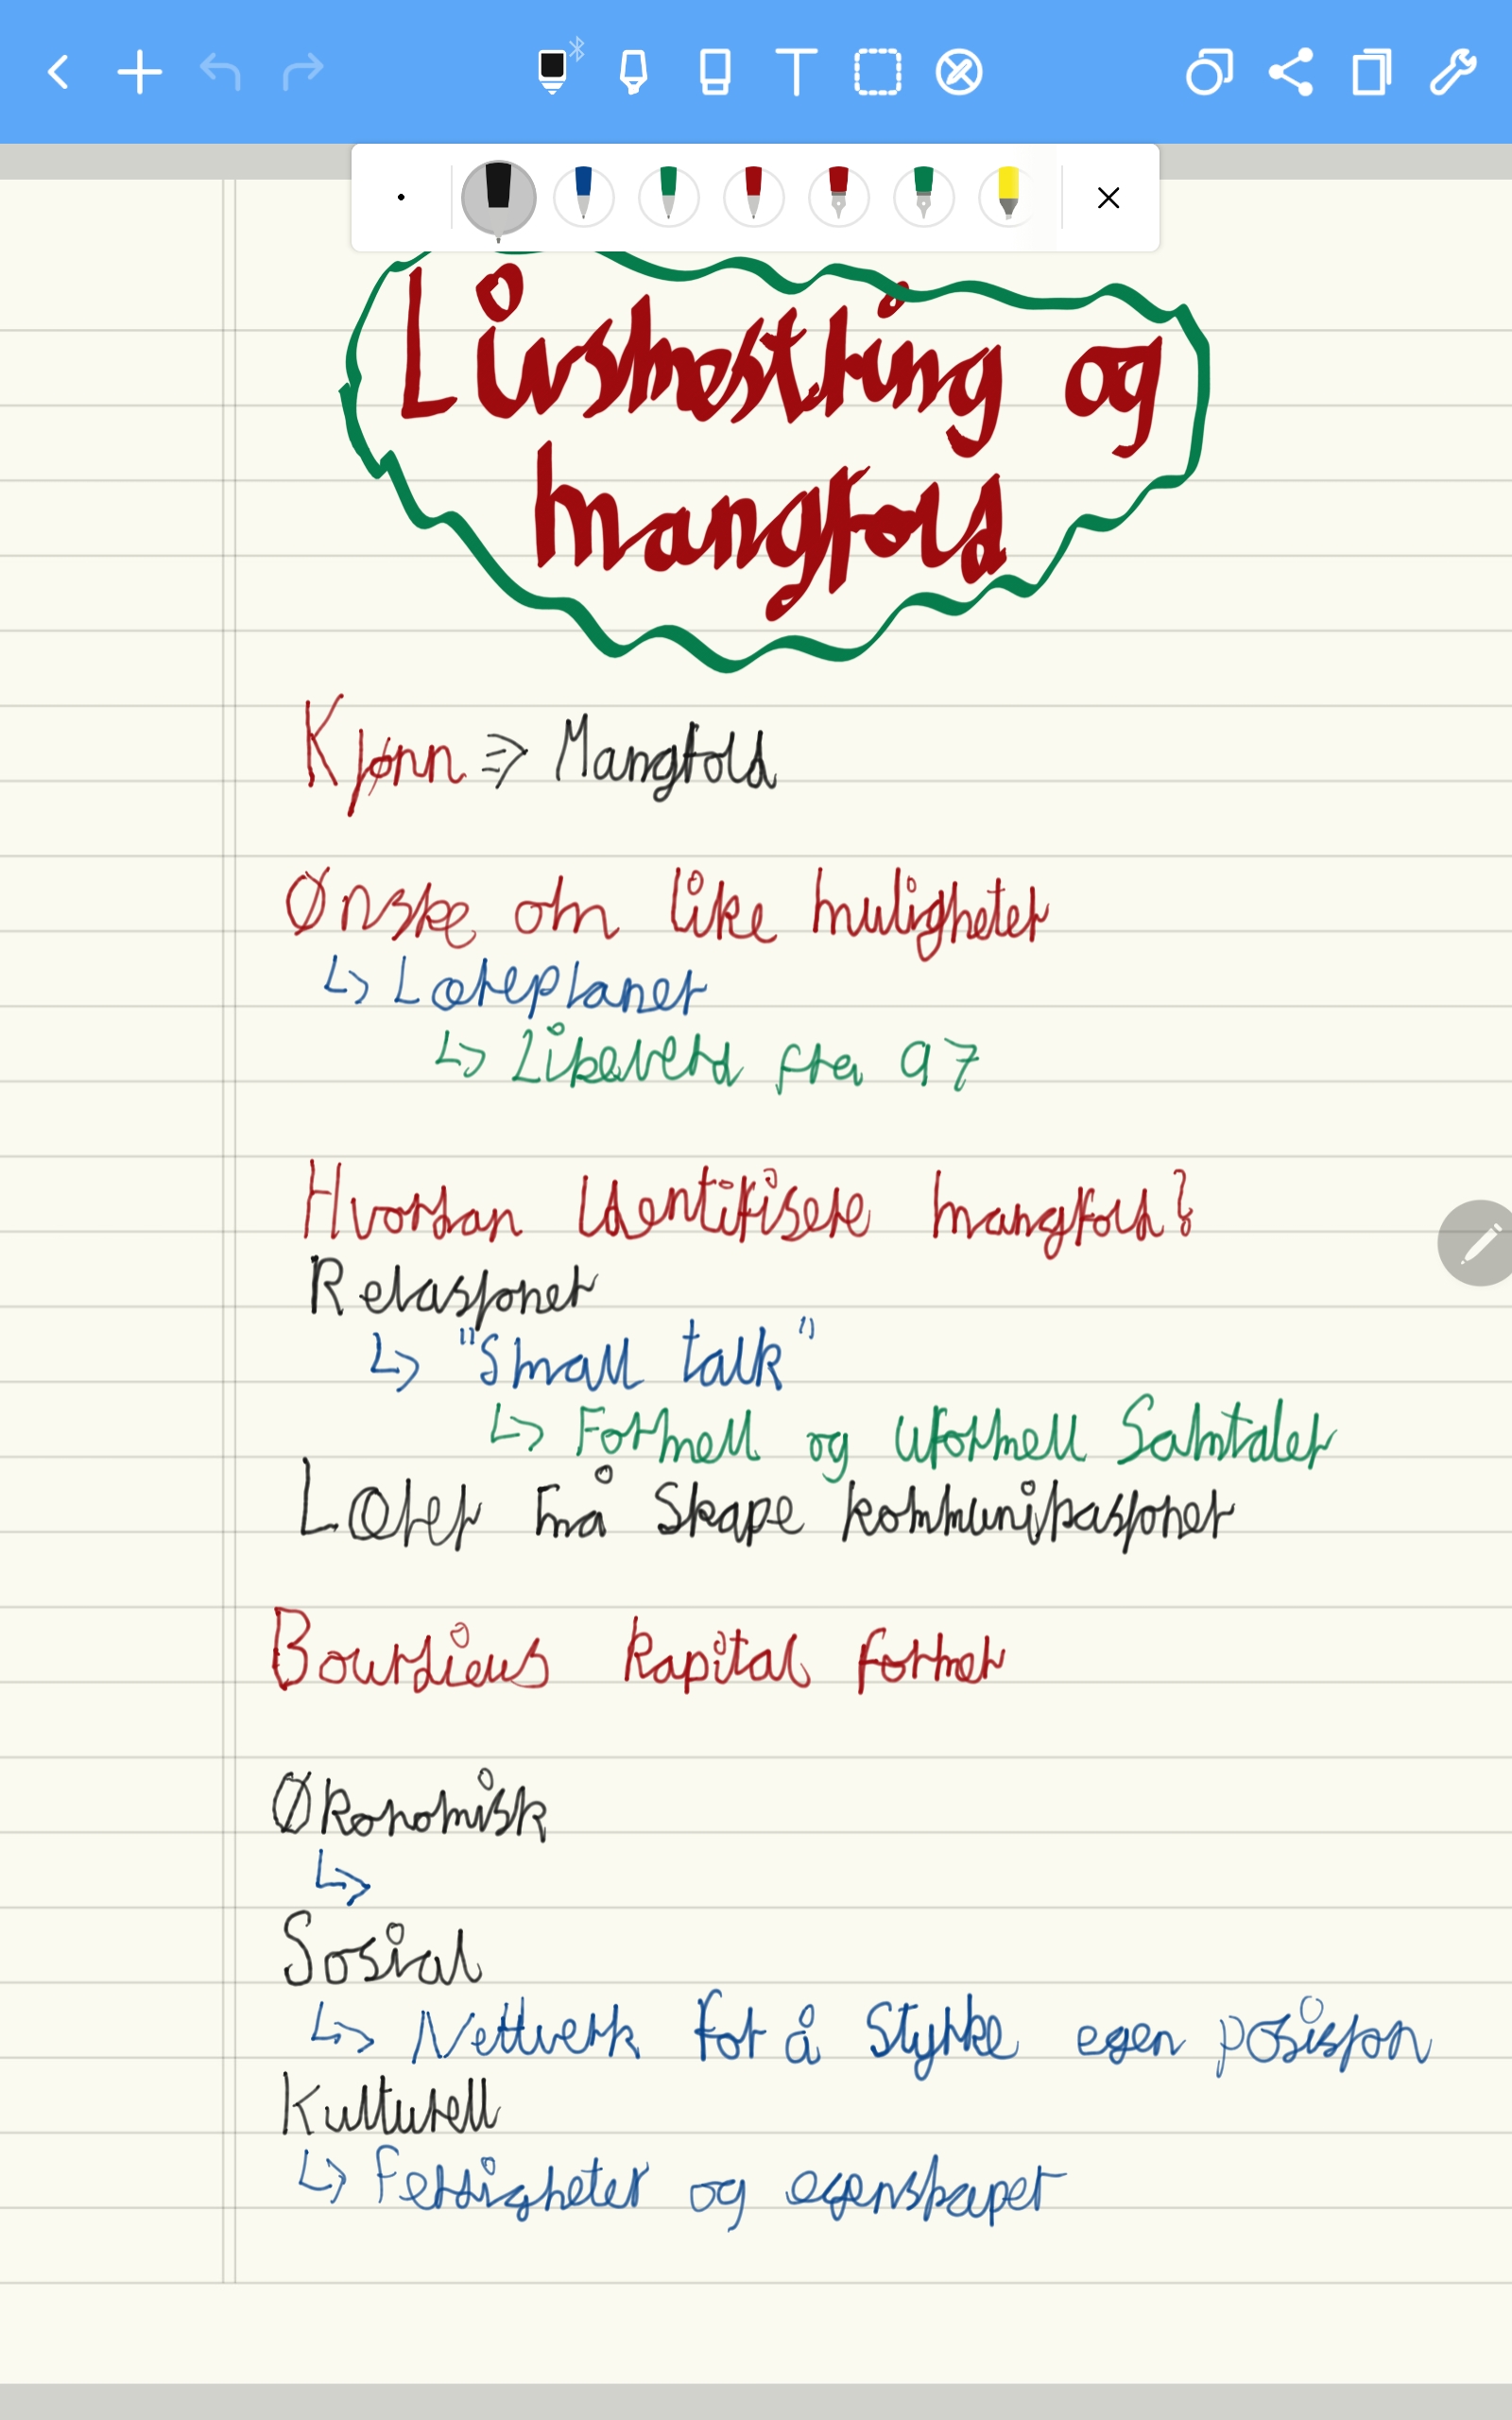 Livsmestring og
mangfold
Kjønn => Mangfold
Ønske om like muligheter
↳ Læreplaner
↳ Likeverd fra 97
Hvordan identifisere mangfold?
Relasjoner
↳ "Small talk"
↳ Formell og uformell Samtaler
Lærer må Skape kommunikasjoner
Bourdieus kapital former
Økonomisk
↳
Sosial
↳ Nettverk for å Styrke egen posisjon
Kulturell
↳ Ferdigheter og egenskaper